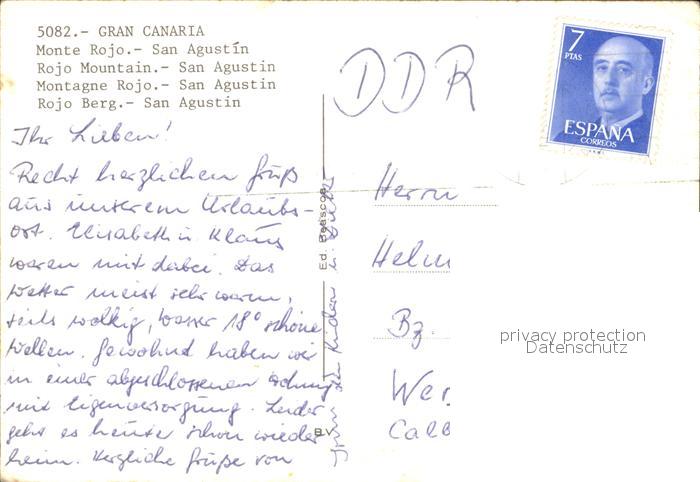 5082.- GRAN CANARIA
Monte Rojo.- San Agustín
Rojo Mountain.- San Agustin
Montagne Rojo.- San Agustin
Rojo Berg.- San Agustin
Ihr Lieben!
Recht herzlichen Gruß
aus unserem Urlaubs-
ort. Elisabeth u. Klaus
waren mit dabei. Das
Wetter meist sehr warm,
teils wolkig, Wasser 18° schöne
Wellen. Gewohnt haben wir
in einer abgeschlossenen
mit Eigenversorgung. Leider
geht es heute schon wieder
heim. Herzliche Grüße von
Ed. Beascoa
B.V.
DDR
7
PTAS
ESPAÑA
CORREOS
Herrn
Helm
Bz.
Wer
Calb
privacy protection
Datenschutz